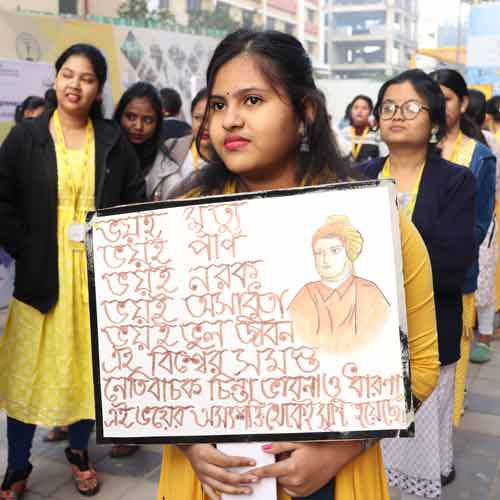 ভয়ই মৃত্যু
ভয়ই পাপ
ভয়ই নরক
ভয়ই অসাধুতা
ভয়ই ভুল জীবন
এই বিশ্বের সমস্ত
নেতিবাচক চিন্তা ভাবনাও ধারণা
এই ভয়ের অসৎশক্তি থেকেই সৃষ্টি হয়েছে।